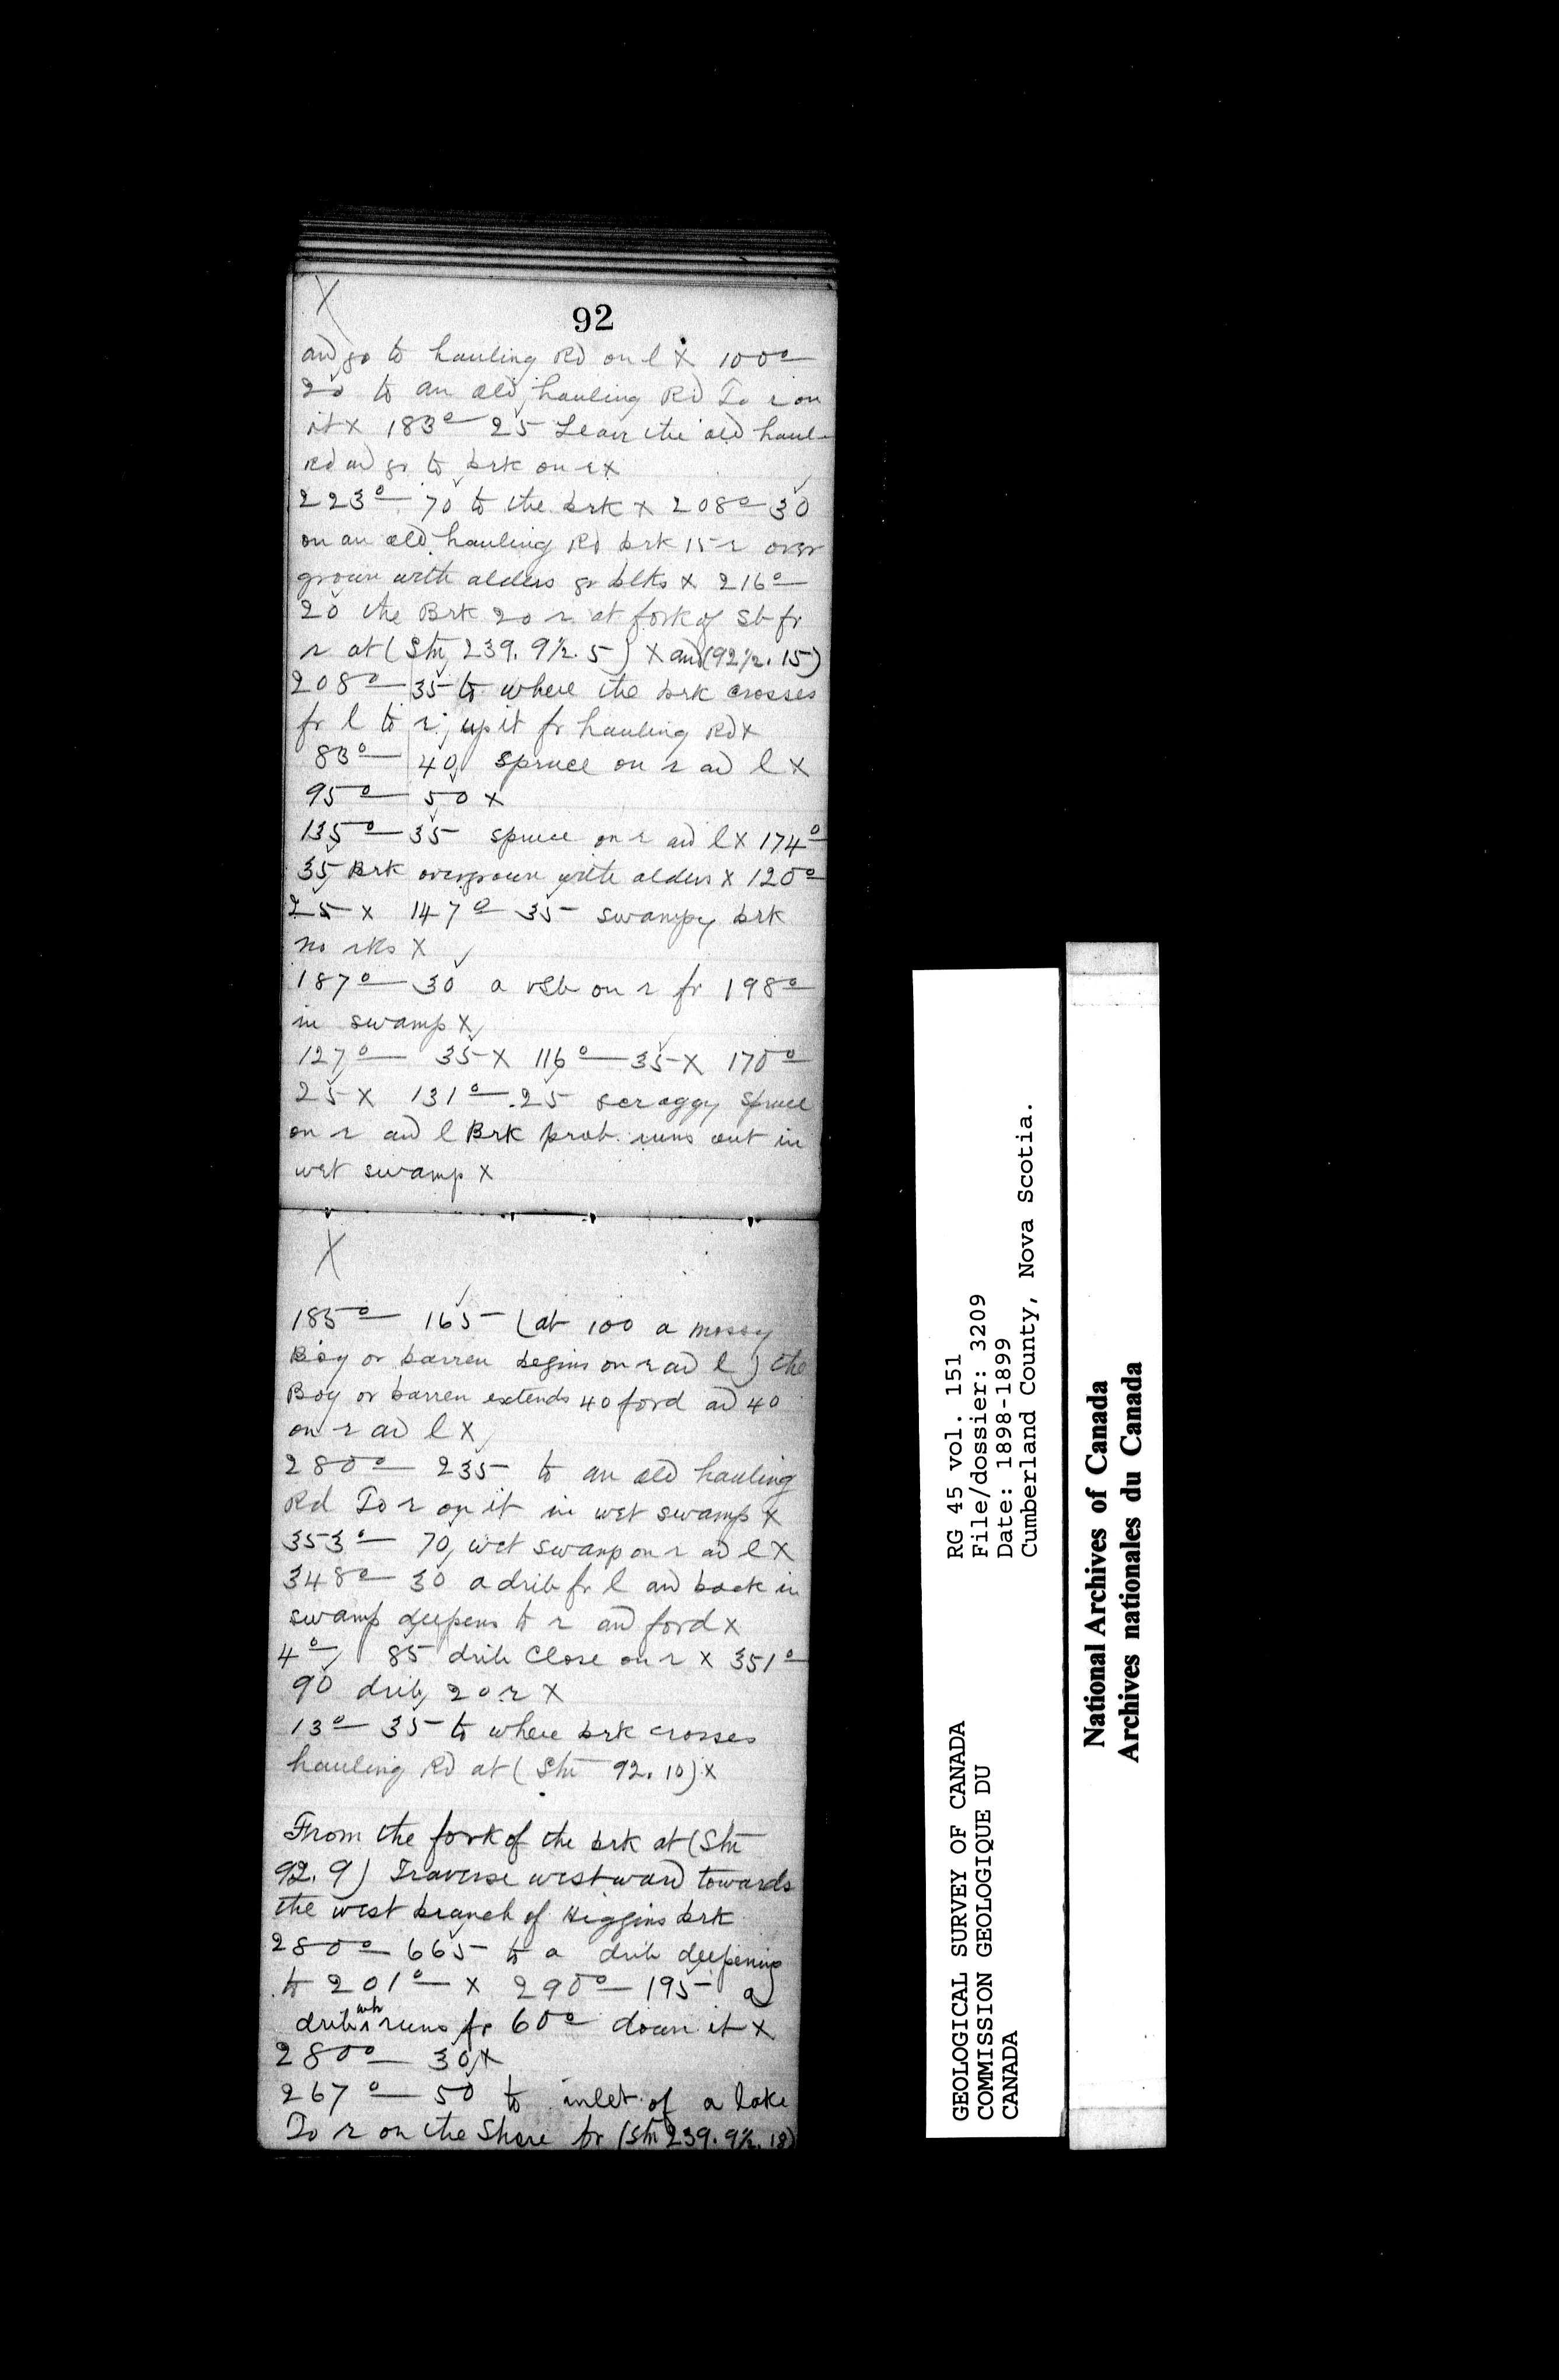 X
92
and go to hauling Rd on l X 100°
20 to an old hauling Rd To r on
it x 183° 25 Leave the old haul-
Rd and go to brk on r x
223° 70 to the brk x 208° 30
on an old hauling Rd brk 15 r over
grown with alders gr blks x 216°
20 the Brk 20 r at fork of Sb fr
r at (Stn 239. 9½. 5) X and (92½. 15)
208° 35 to where the brk crosses
fr l to r; up it fr hauling Rd x
83° 40 Spruce on r and l X
95° 50 x
135° 35 spruce on r and l x 174°
35 Brk overgrown with alders x 120°
25 x 147° 35 swampy brk
no rks X
187° 30 a vSb on r fr 198°
in swamp X
127° 35 X 116° 35 X 170°
25 X 131° 25 scraggy Spruce
on r and l Brk prob. runs out in
wet swamp X
X
185° 165 (at 100 a mossy
Bog or barren begins on r and l) the
Bog or barren extends 40 ford and 40
on r and l X
280° 235 to an old hauling
Rd To r on it in wet swamp x
353° 70 wet swamp on r and l X
348° 30 a drib fr l and back in
swamp deepens to r and ford x
4° 85 drib Close on r x 351°
90 drib 20 r X
13° 35 to where brk crosses
hauling Rd at (Stn 92. 10) x
From the fork of the brk at (Stn
92. 9) Traverse westward towards
the west branch of Higgins brk
280° 665 to a drib deepening
to 201° x 290° 195 a
drib wh runs fr 60° down it x
280° 30 x
267° 50 to inlet of a lake
To r on the Shore fr (Stn 239. 9½. 18)
RG 45 vol. 151
File/dossier: 3209
Date: 1898-1899
Cumberland County, Nova Scotia.
GEOLOGICAL SURVEY OF CANADA
COMMISSION GEOLOGIQUE DU
CANADA
National Archives of Canada
Archives nationales du Canada